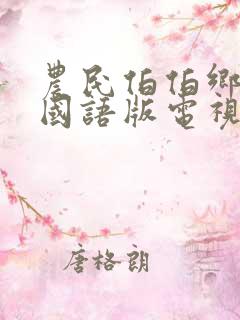 農民伯伯鄉
國語版電視
唐格朗